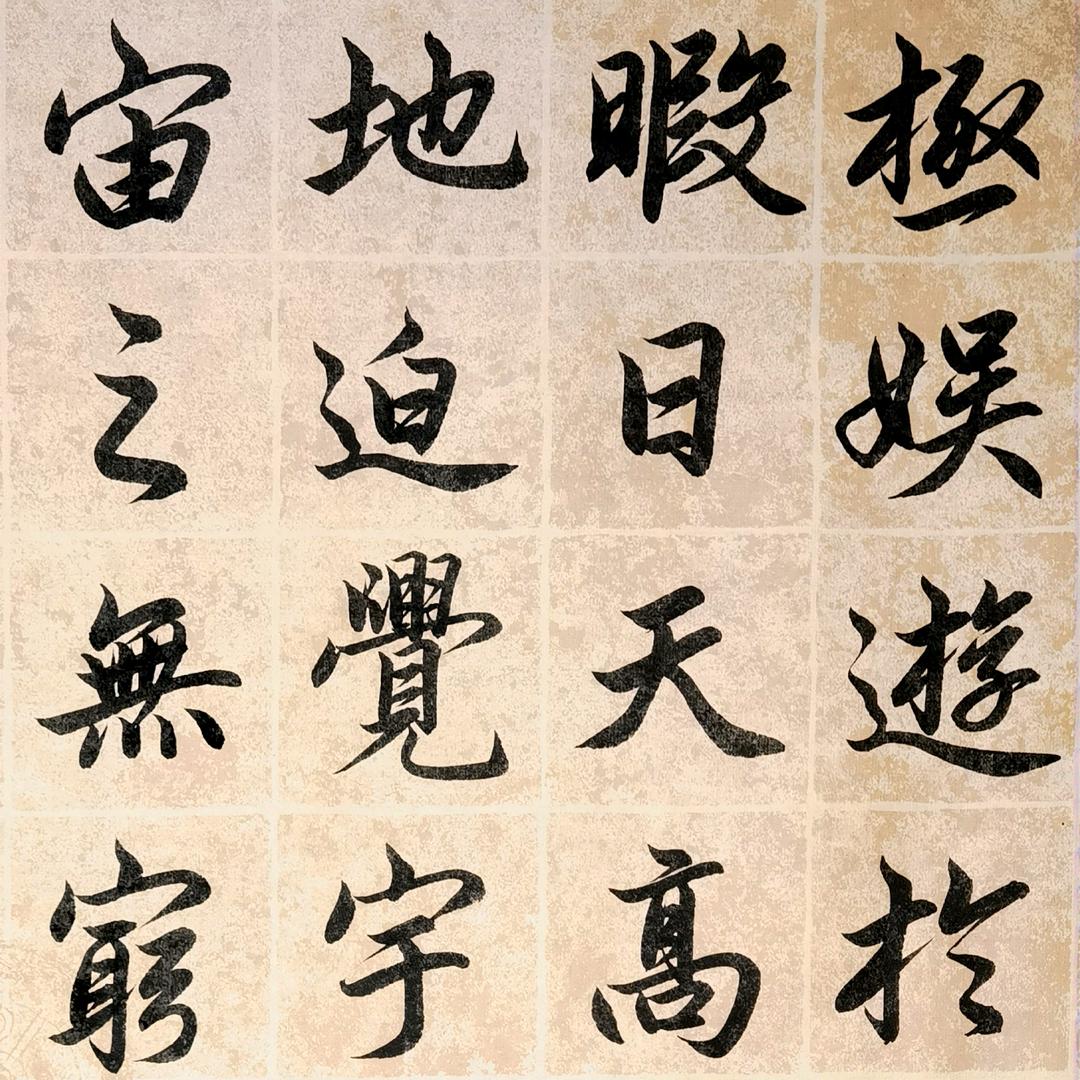 極娛遊於
暇日天高
地迥覺宇
宙之無窮